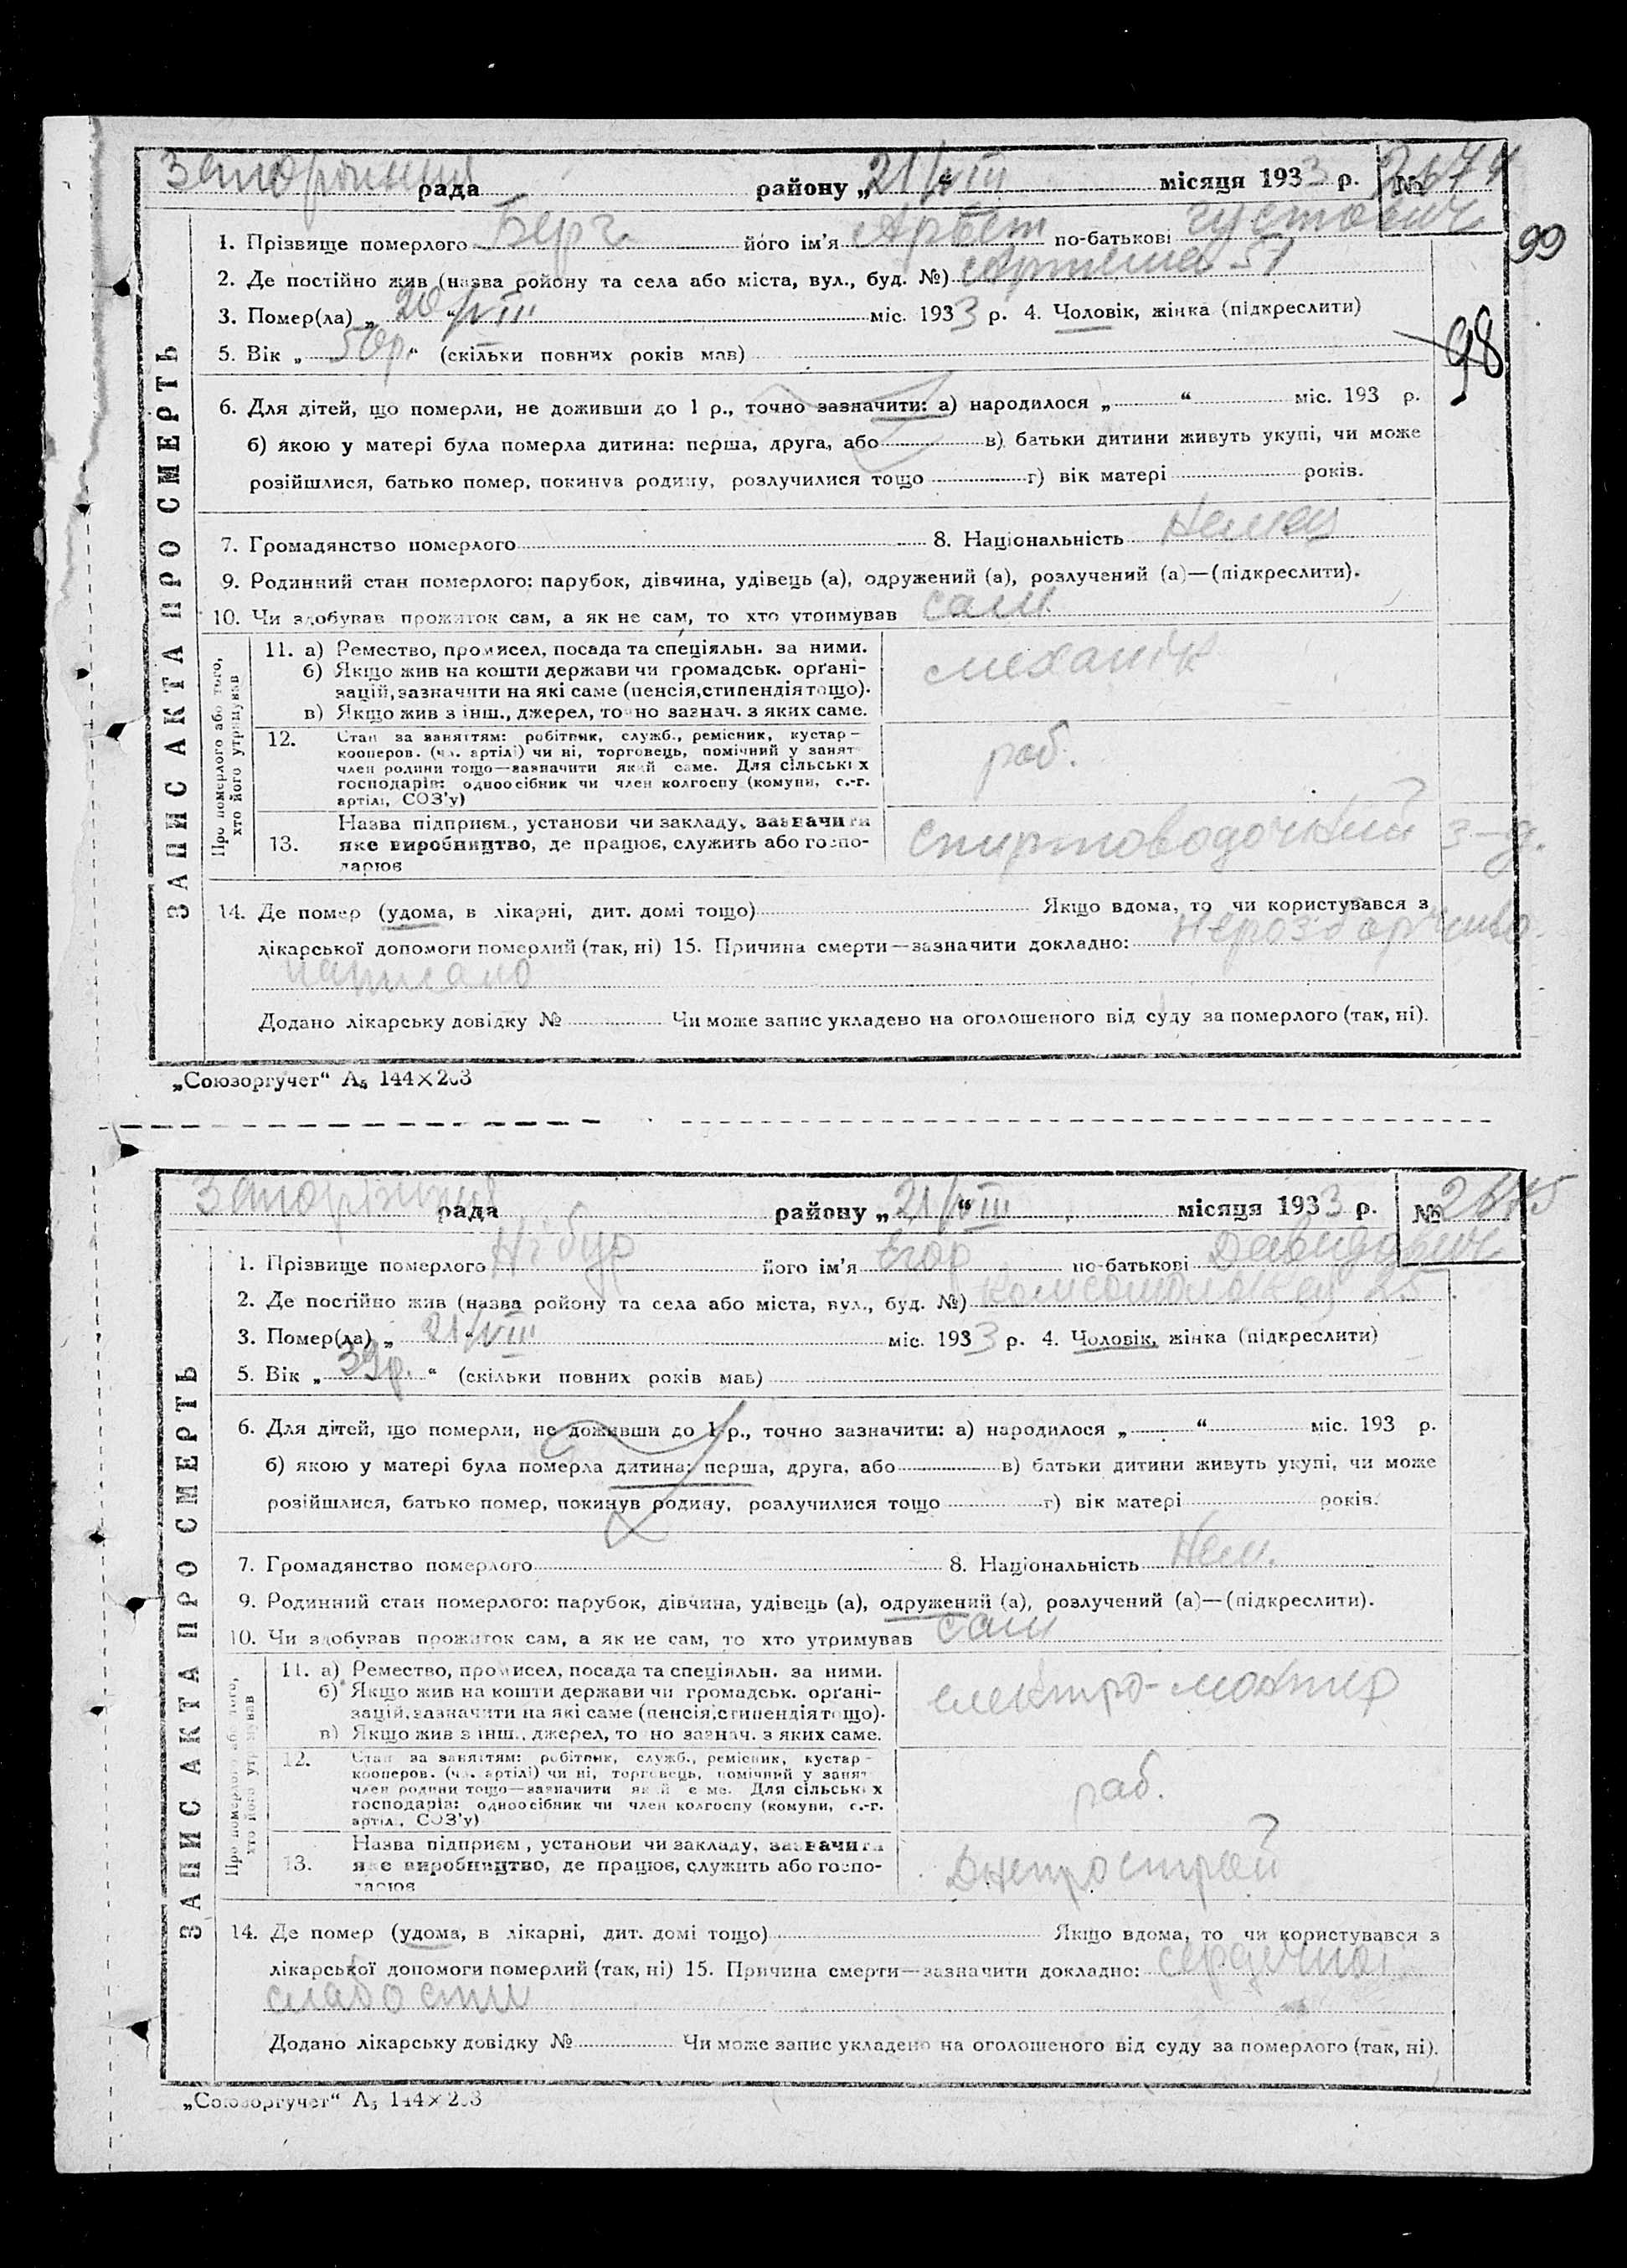 Запорізька рада району „21/VIII“ місяця 1933 р. № 2674
1. Прізвище померлого Берг його ім'я по-батькові Густович
99
2. Де постійно жив (назва району та села або міста, вул., буд. №) Артема 51
3. Помер(ла) „20/VIII“ міс. 1933 р. 4. Чоловік, жінка (підкреслити)
98
5. Вік „50р.“ (скільки повних років мав)
6. Для дітей, що померли, не доживши до 1 р., точно зазначити: а) народилося „ “ міс. 193 р.
б) якою у матері була померла дитина: перша, друга, або в) батьки дитини живуть укупі, чи може
розійшлися, батько помер, покинув родину, розлучилися тощо г) вік матері років.
7. Громадянство померлого 8. Національність Немец
9. Родинний стан померлого: парубок, дівчина, удівець (а), одружений (а), розлучений (а)—(підкреслити).
10. Чи здобував прожиток сам, а як не сам, то хто утримував сам.
ЗАПИС АКТА ПРО СМЕРТЬ
Про померлого або того,
хто його утримував
11. а) Ремество, промисел, посада та спеціяльн. за ними.
б) Якщо жив на кошти держави чи громадськ. орґані-
зацій, зазначити на які саме (пенсія, стипендія тощо).
в) Якщо жив з інш., джерел, точно зазнач. з яких саме.
механік
12. Стан за заняттям: робітник, служб., ремісник, кустар—
кооперов. (чл. артілі) чи ні, торговець, помічний у занят
член родини тощо—зазначити який саме. Для сільських
господарів: одноосібник чи член колгоспу (комуни, с.-г.
артілі, СОЗ'у)
раб.
13. Назва підприєм., установи чи закладу, зазначити
яке виробництво, де працює, служить або госпо-
дарює
спиртоводочний з-д.
14. Де помер (удома, в лікарні, дит. домі тощо) Якщо вдома, то чи користувався з
лікарської допомоги померлий (так, ні) 15. Причина смерти—зазначити докладно: нерозбірчиво
написано
Додано лікарську довідку № Чи може запис укладено на оголошеного від суду за померлого (так, ні).
„Союзоргучет“ А5 144×203
Запорізька рада району „21/VIII“ місяця 1933 р. № 2675
1. Прізвище померлого Нібур його ім'я Егор по-батькові Давидович
2. Де постійно жив (назва району та села або міста, вул., буд. №) 25
3. Помер(ла) „21/VIII“ міс. 1933 р. 4. Чоловік, жінка (підкреслити)
5. Вік „39р.“ (скільки повних років мав)
6. Для дітей, що померли, не доживши до 1 р., точно зазначити: а) народилося „ “ міс. 193 р.
б) якою у матері була померла дитина: перша, друга, або в) батьки дитини живуть укупі, чи може
розійшлися, батько помер, покинув родину, розлучилися тощо г) вік матері років.
7. Громадянство померлого 8. Національність Нем.
9. Родинний стан померлого: парубок, дівчина, удівець (а), одружений (а), розлучений (а)—(підкреслити).
10. Чи здобував прожиток сам, а як не сам, то хто утримував сам
ЗАПИС АКТА ПРО СМЕРТЬ
Про померлого або того,
хто його утримував
11. а) Ремество, промисел, посада та спеціяльн. за ними.
б) Якщо жив на кошти держави чи громадськ. орґані-
зацій, зазначити на які саме (пенсія, стипендія тощо).
в) Якщо жив з інш., джерел, точно зазнач. з яких саме.
електро-монтер
12. Стан за заняттям: робітник, служб., ремісник, кустар—
кооперов. (чл. артілі) чи ні, торговець, помічний у занят
член родини тощо—зазначити який саме. Для сільських
господарів: одноосібник чи член колгоспу (комуни, с.-г.
артілі, СОЗ'у)
раб.
13. Назва підприєм., установи чи закладу, зазначити
яке виробництво, де працює, служить або госпо-
дарює
Днепрострой
14. Де помер (удома, в лікарні, дит. домі тощо) Якщо вдома, то чи користувався з
лікарської допомоги померлий (так, ні) 15. Причина смерти—зазначити докладно: сердечної
слабости
Додано лікарську довідку № Чи може запис укладено на оголошеного від суду за померлого (так, ні).
„Союзоргучет“ А5 144×203